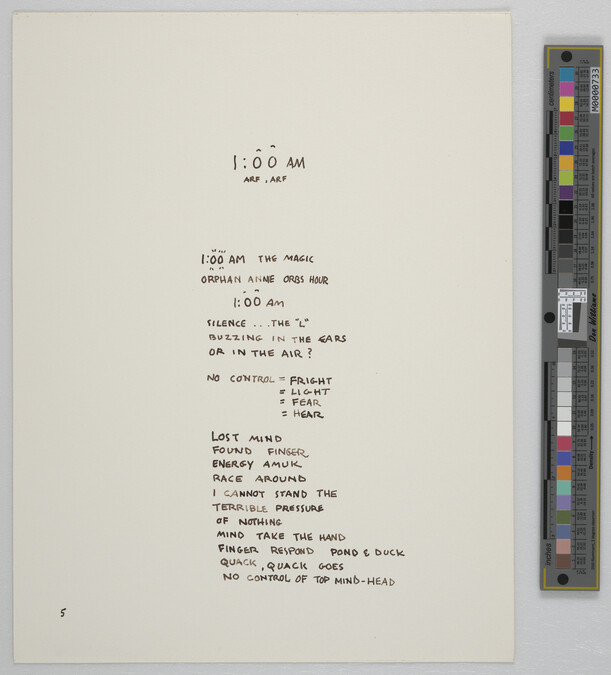 1:00 AM
ARF, ARF
1:00 AM THE MAGIC
ORPHAN ANNIE ORBS HOUR
1:00 AM
SILENCE ... THE "L"
BUZZING IN THE EARS
OR IN THE AIR?
NO CONTROL = FRIGHT
= LIGHT
= FEAR
= HEAR
LOST MIND
FOUND FINGER
ENERGY AMUK
RACE AROUND
I CANNOT STAND THE
TERRIBLE PRESSURE
OF NOTHING
MIND TAKE THE HAND
FINGER RESPOND POND & DUCK
QUACK, QUACK GOES
NO CONTROL OF TOP MIND-HEAD
5
M0000733
centimeters
Don Williams
Density
inches